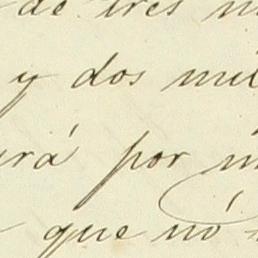 de tres
y dos mil
por
que nó